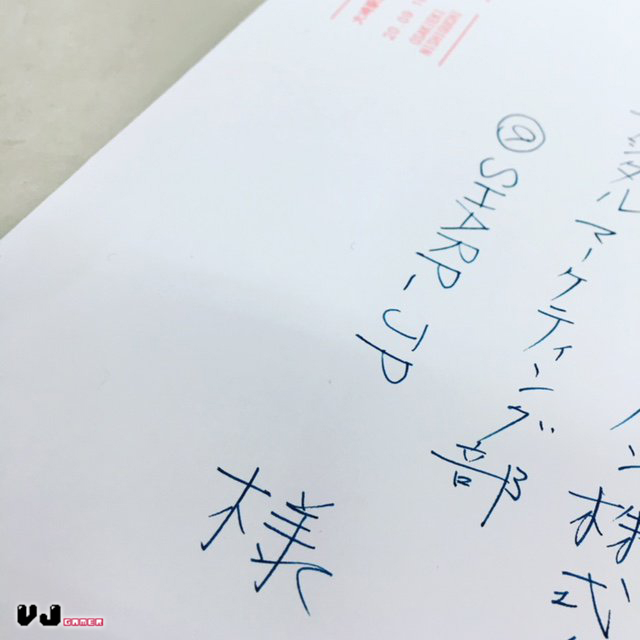 ン株式
マーケティング部
@SHARP_JP
様
VJ GAMER